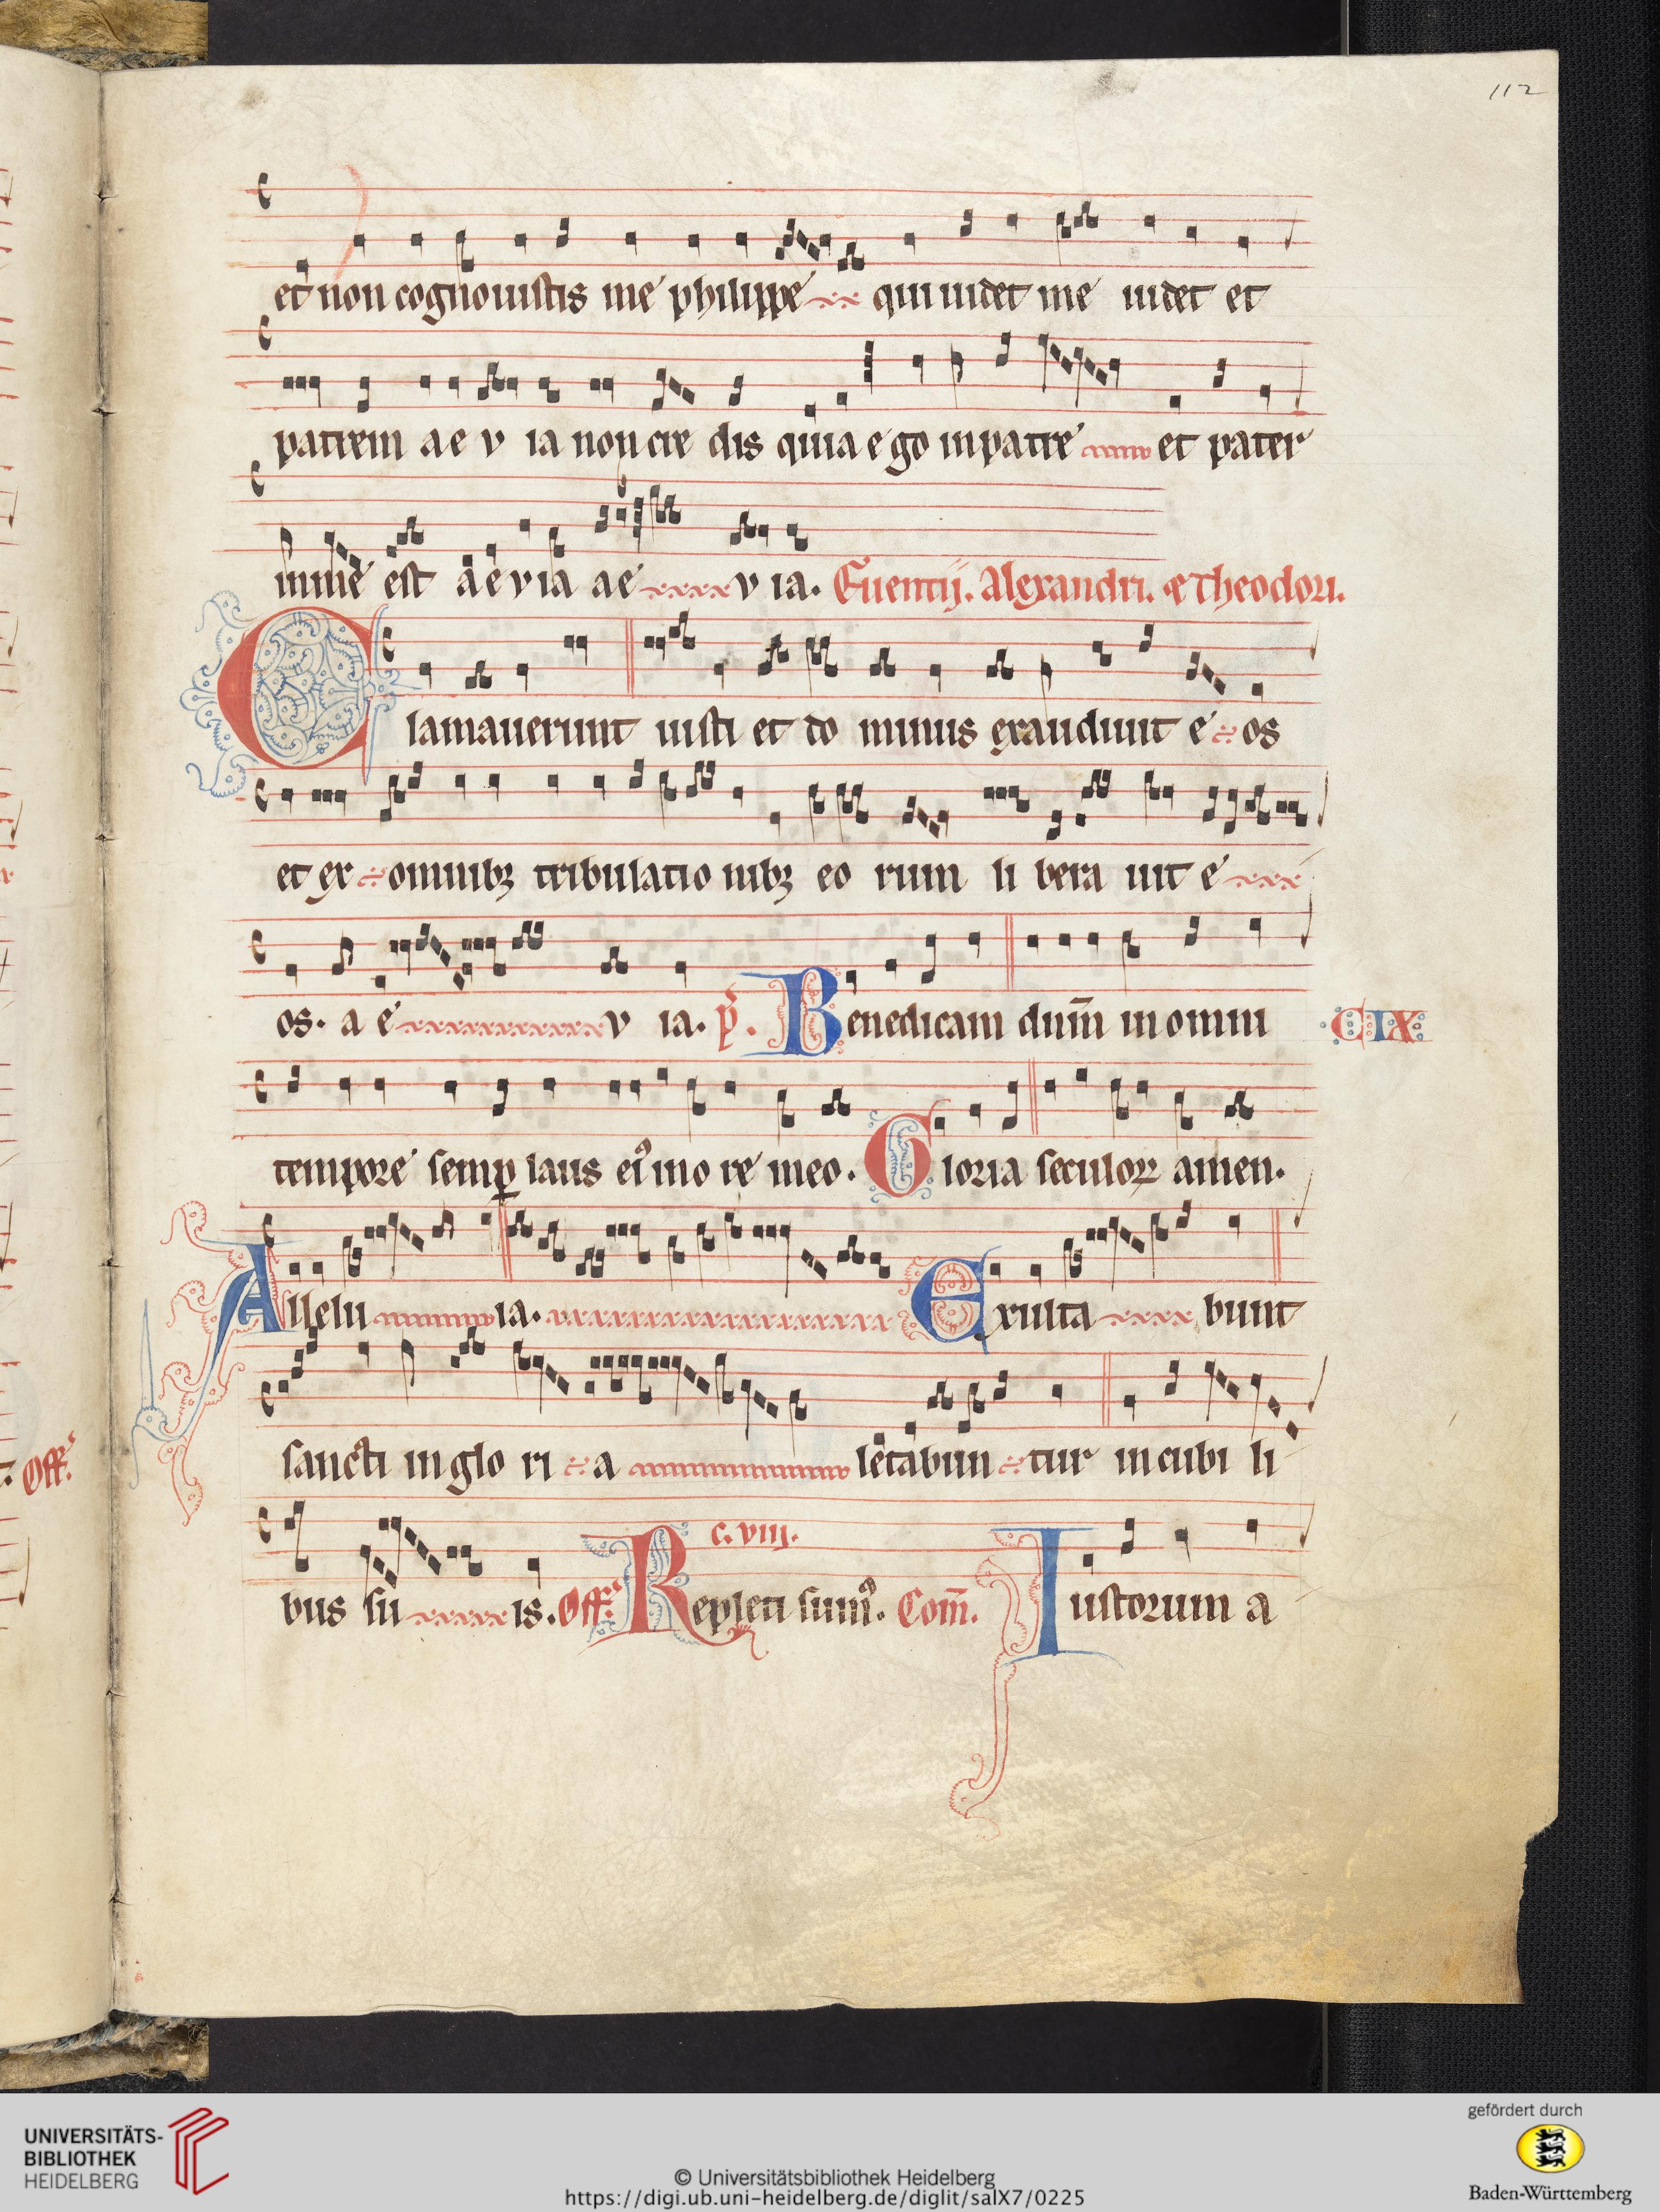 112
et non cognouistis me philippe qui uidet me uidet et
patrem a e v ia non cre dis quia ego in patre et pater
in me est a e v ia a e v ia. Euentij. Alexandri. et Theodori.
Clamauerunt iusti et do minus exaudiuit e os
et ex omnibꝫ tribulatio nibꝫ eo rum li bera uit e
os. a e v ia. p̄. Benedicam dum̄ in omni CIX
tempore semꝑ laus eiꝰ in o re meo. Gloria seculoꝝ amen.
Allelu ia. Exulta bunt
sancti in glo ri a letabun tur in cubi li
c. viii.
bus su is. Off. Repleti sumꝰ. Com̄. Iustorum a
Off.
UNIVERSITÄTS-
BIBLIOTHEK
HEIDELBERG
© Universitätsbibliothek Heidelberg
https://digi.ub.uni-heidelberg.de/diglit/salX7/0225
gefördert durch
Baden-Württemberg